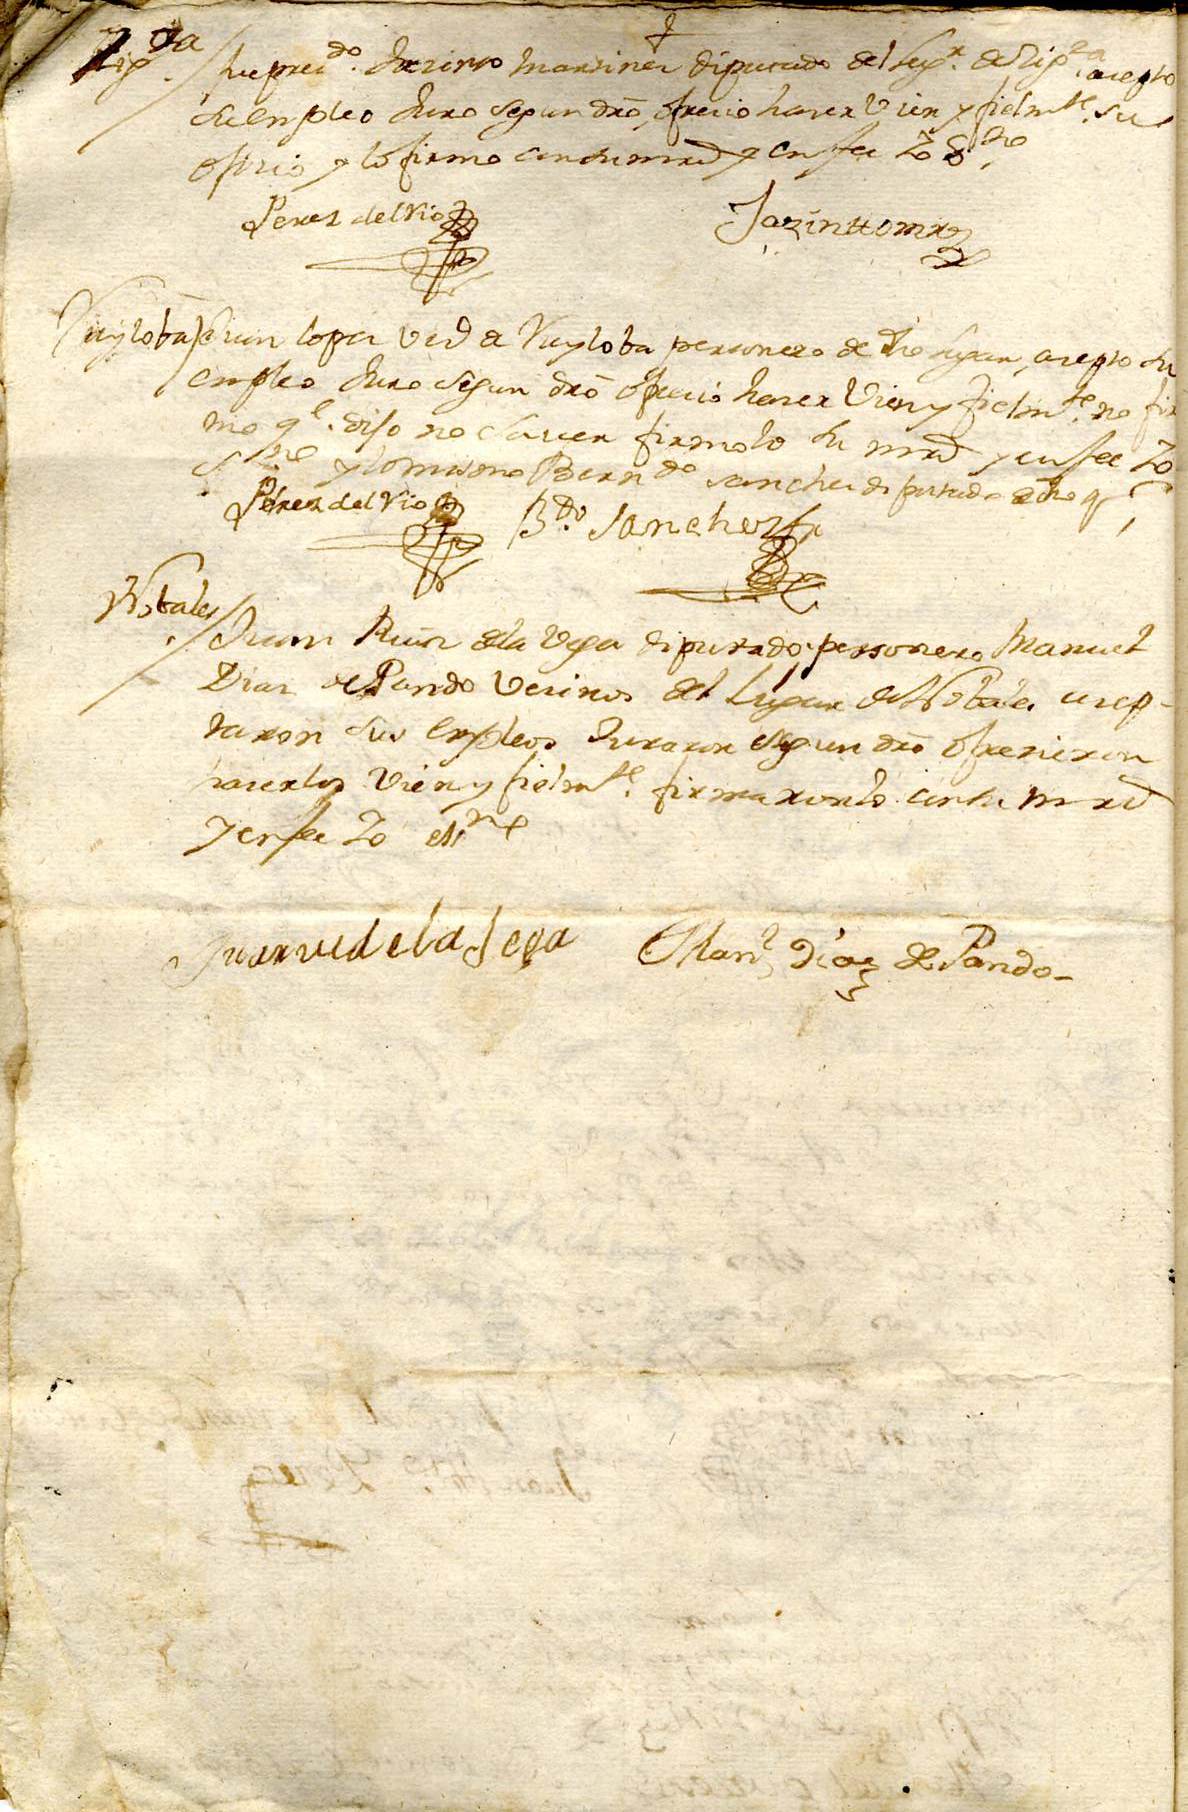 Zig.za / Jacinto Martinez diputado del lugr. de Zig.za acepto
su empleo Juro segun dro, ofrecio hacer Vien y fielmte. su
oficio y lo firmo con su mrd y en fee Yo Ssno
Perez del Rio Jazintto Mrz
Ruyloba / Juan Lopez vezº de Ruyloba personero de dho lugar, acepto su
empleo Juro segun dro ofrecio hacer Vien y fielmte. no fir
mo qe. dijo no saver firmolo su mrd y en fee Yo
Ssno y lo mismo Berndo Sanchez diputado
Perez del Rio Bdo. Sanchez
Nobales
/ Juan Ruiz de la Vega diputado, personero Manuel
Diaz de Pando Vecinos del Lugar de Nobales acep-
taron sus empleos Juraron segun dro ofrecieron
hacerlos Vien y fielmte. firmaronlo con su mrd
y en fee Yo essno
Juan de la Vega Manl Diaz de Pando